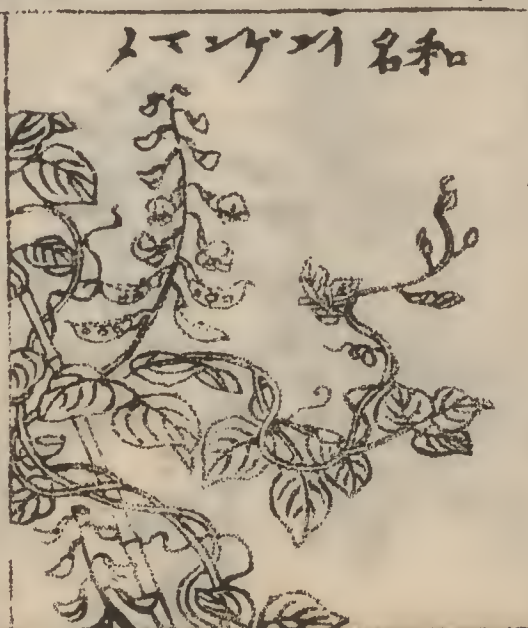 和名 インゲンマメ